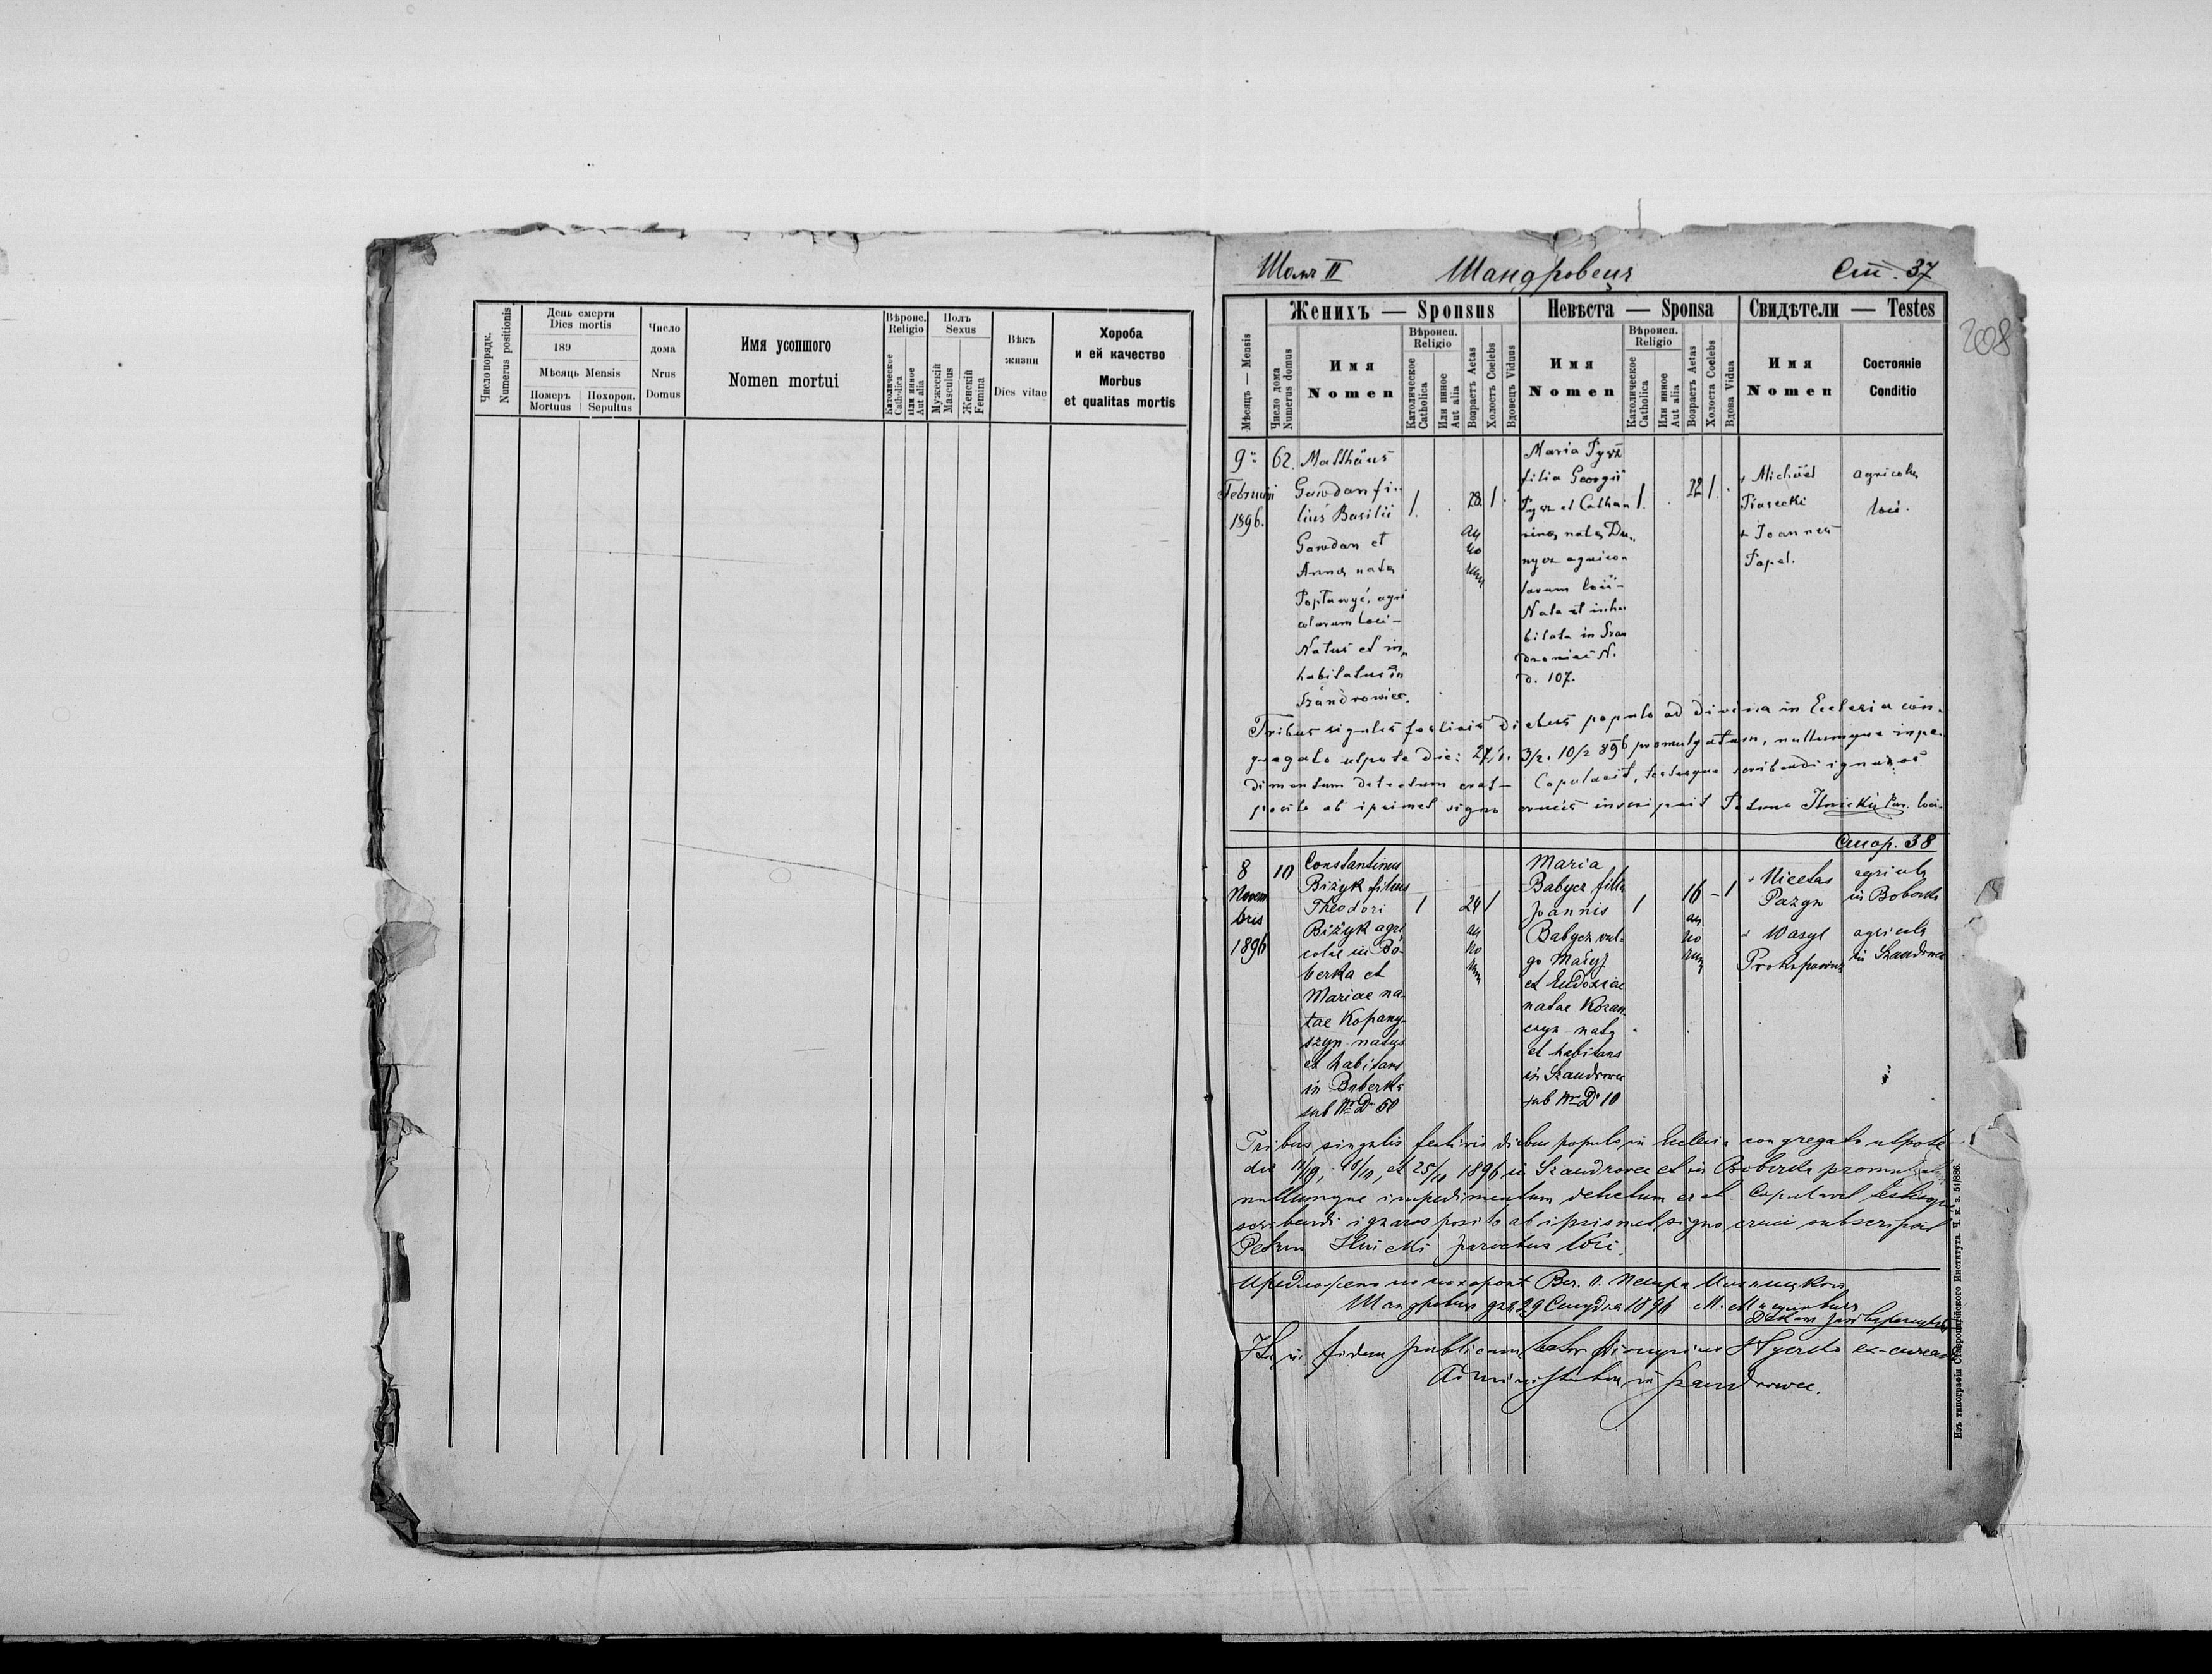 Число порядк.
Numerus positionis
День смерти
Dies mortis
189
Мѣсяць Mensis
Померъ
Mortuus
Похорон.
Sepultus
Число
дома
Nrus
Domus
Имя усопшого
Nomen mortui
Вѣроис.
Religio
Католическое
Catholica
Или инное
Aut alia
Полъ
Sexus
Мужескій
Masculus
Женскій
Femina
Вѣкъ
жизни
Dies vitae
Хороба
и ей качество
Morbus
et qualitas mortis
Томъ II Шандровець Ст. 37
208
Мѣсяць — Mensis
Число дома
Numerus domus
Женихъ — Sponsus
Имя
Nomen
Вѣроисп.
Religio
Католическое
Catholica
Или инное
Aut alia
Возрастъ Aetas
Холостъ Coelebs
Вдовецъ Viduus
Невѣста — Sponsa
Имя
Nomen
Вѣроисп.
Religio
Католическое
Catholica
Или инное
Aut alia
Возрастъ Aetas
Холоста Coelebs
Вдова Vidua
Свидѣтели — Testes
Имя
Nomen
Состояніе
Conditio
9
Februarii
1896.
62.
Matthäus
Gawdan fi-
lius Basilii
Gawdan et
Anna nata
agri
colarum loci-
Natus et in
habitatus in
Szandrowiec.
1.
28
an
no
rum
1.
Maria
filia Georgii
et Catha
rina nata
agrico
larum loci-
Nata et inha
bitata in Szan
drowiec N.
d. 107.
1.
22
1.
+ Michael
Piasecki
+ Joannes
Popel.
agricolae
loci.
Tribus singulis festivis diebus populo ad divina in Ecclesia con-
gregato utpote die: 27/1. 3/2. 10/2 896 promulgatum, nullumque impe-
dimentum detectum erat- Copulavit, testesque scribendi ignaros
posito ab ipsimet signo crucis inscripsit Petrus Ilnickij Par. loci.
Стор. 38
8
Novem
bris
1896
10
Constantinus
Biżyk filius
Theodori
Biżyk agri
colae in Bo-
berka et
Mariae na-
tae Kopany-
szyn natus
et habitans
in Boberka
sub Nr D 50
1
24
an
no
rum
1
Maria
Babycz filia
Joannis
Babycz vul-
go
et Eudoxiae
natae Kozan
czyn nata
et habitans
in Szandrowec
sub Nr D 10
1
16
an
no
rum
- 1
+ Nicetas
Pazyn
+ Wasyl
agricola
in Boberka
agricola
in Szandrowec
Tribus singulis festivis diebus populo in Ecclesia congregato utpote
die 18/10, et 25/10 1896 in Szandrowec et in Boberka
nullumque impedimentum detectum erat. Copulavit testesque
scribendi ignaros posito ab ipsismet signo crucis subscripsit
Petrus Ilnicki parochus loci.
Предложено Вел. о. Петра
Шандровець дня 29 1896 М.
Деканъ
In fidem publicam
Administrator in Szandrowec.
Изъ типографіи Ставропигійского Института. Ч. к. з. 51/886.